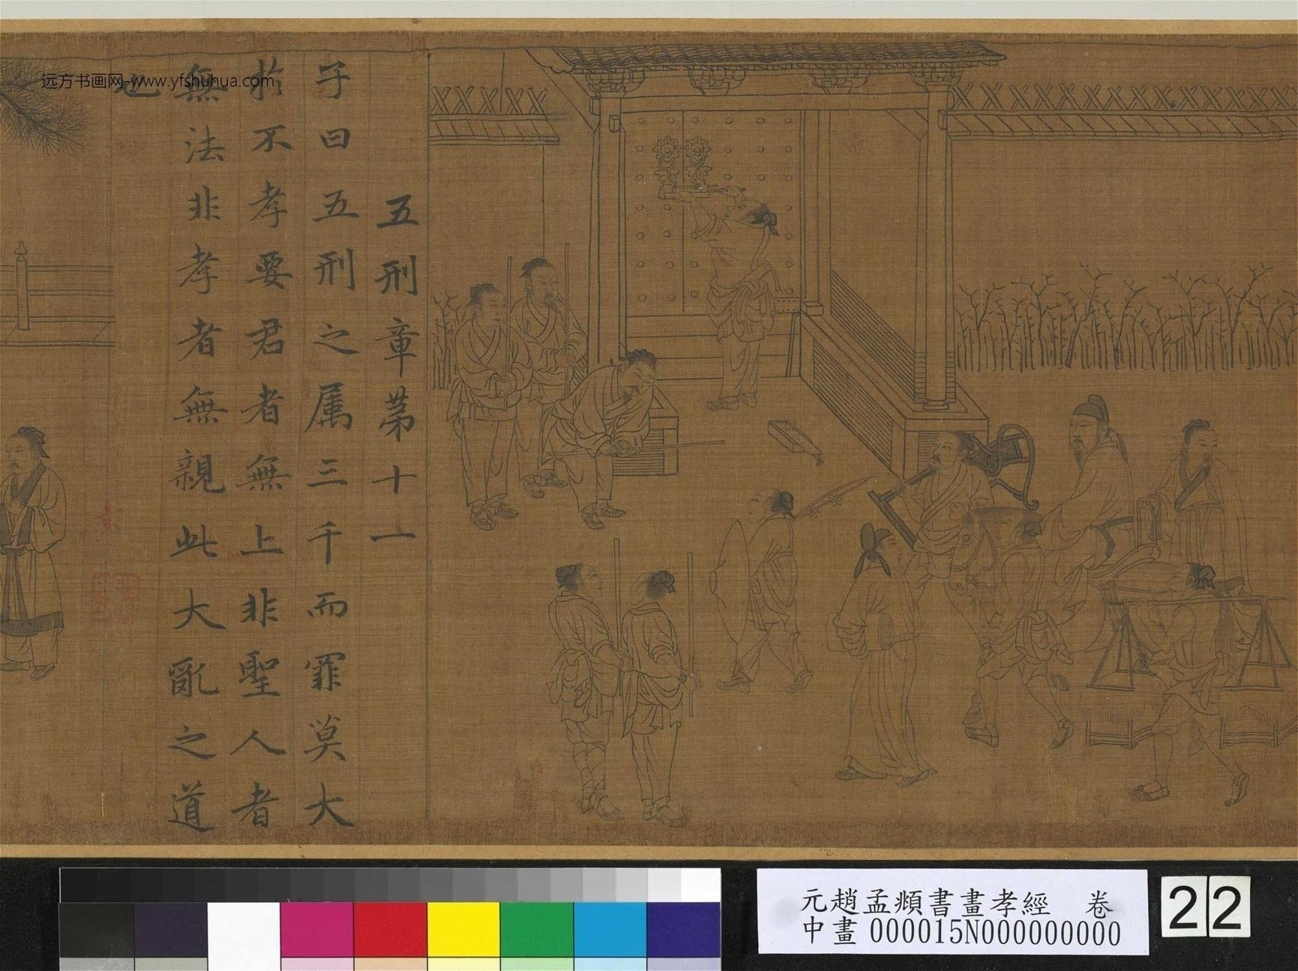 五刑章第十一
子曰五刑之属三千而罪莫大
於不孝要君者無上非聖人者
無法非孝者無親此大亂之道
也
远方书画网-www.yfshuhua.com
元趙孟頫書畫孝經 卷
中畫 000015N000000000
22